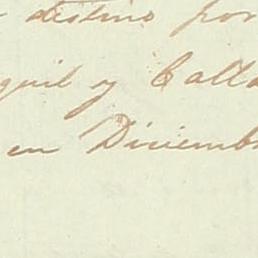 destino por
quil y Calla
en Diciemb